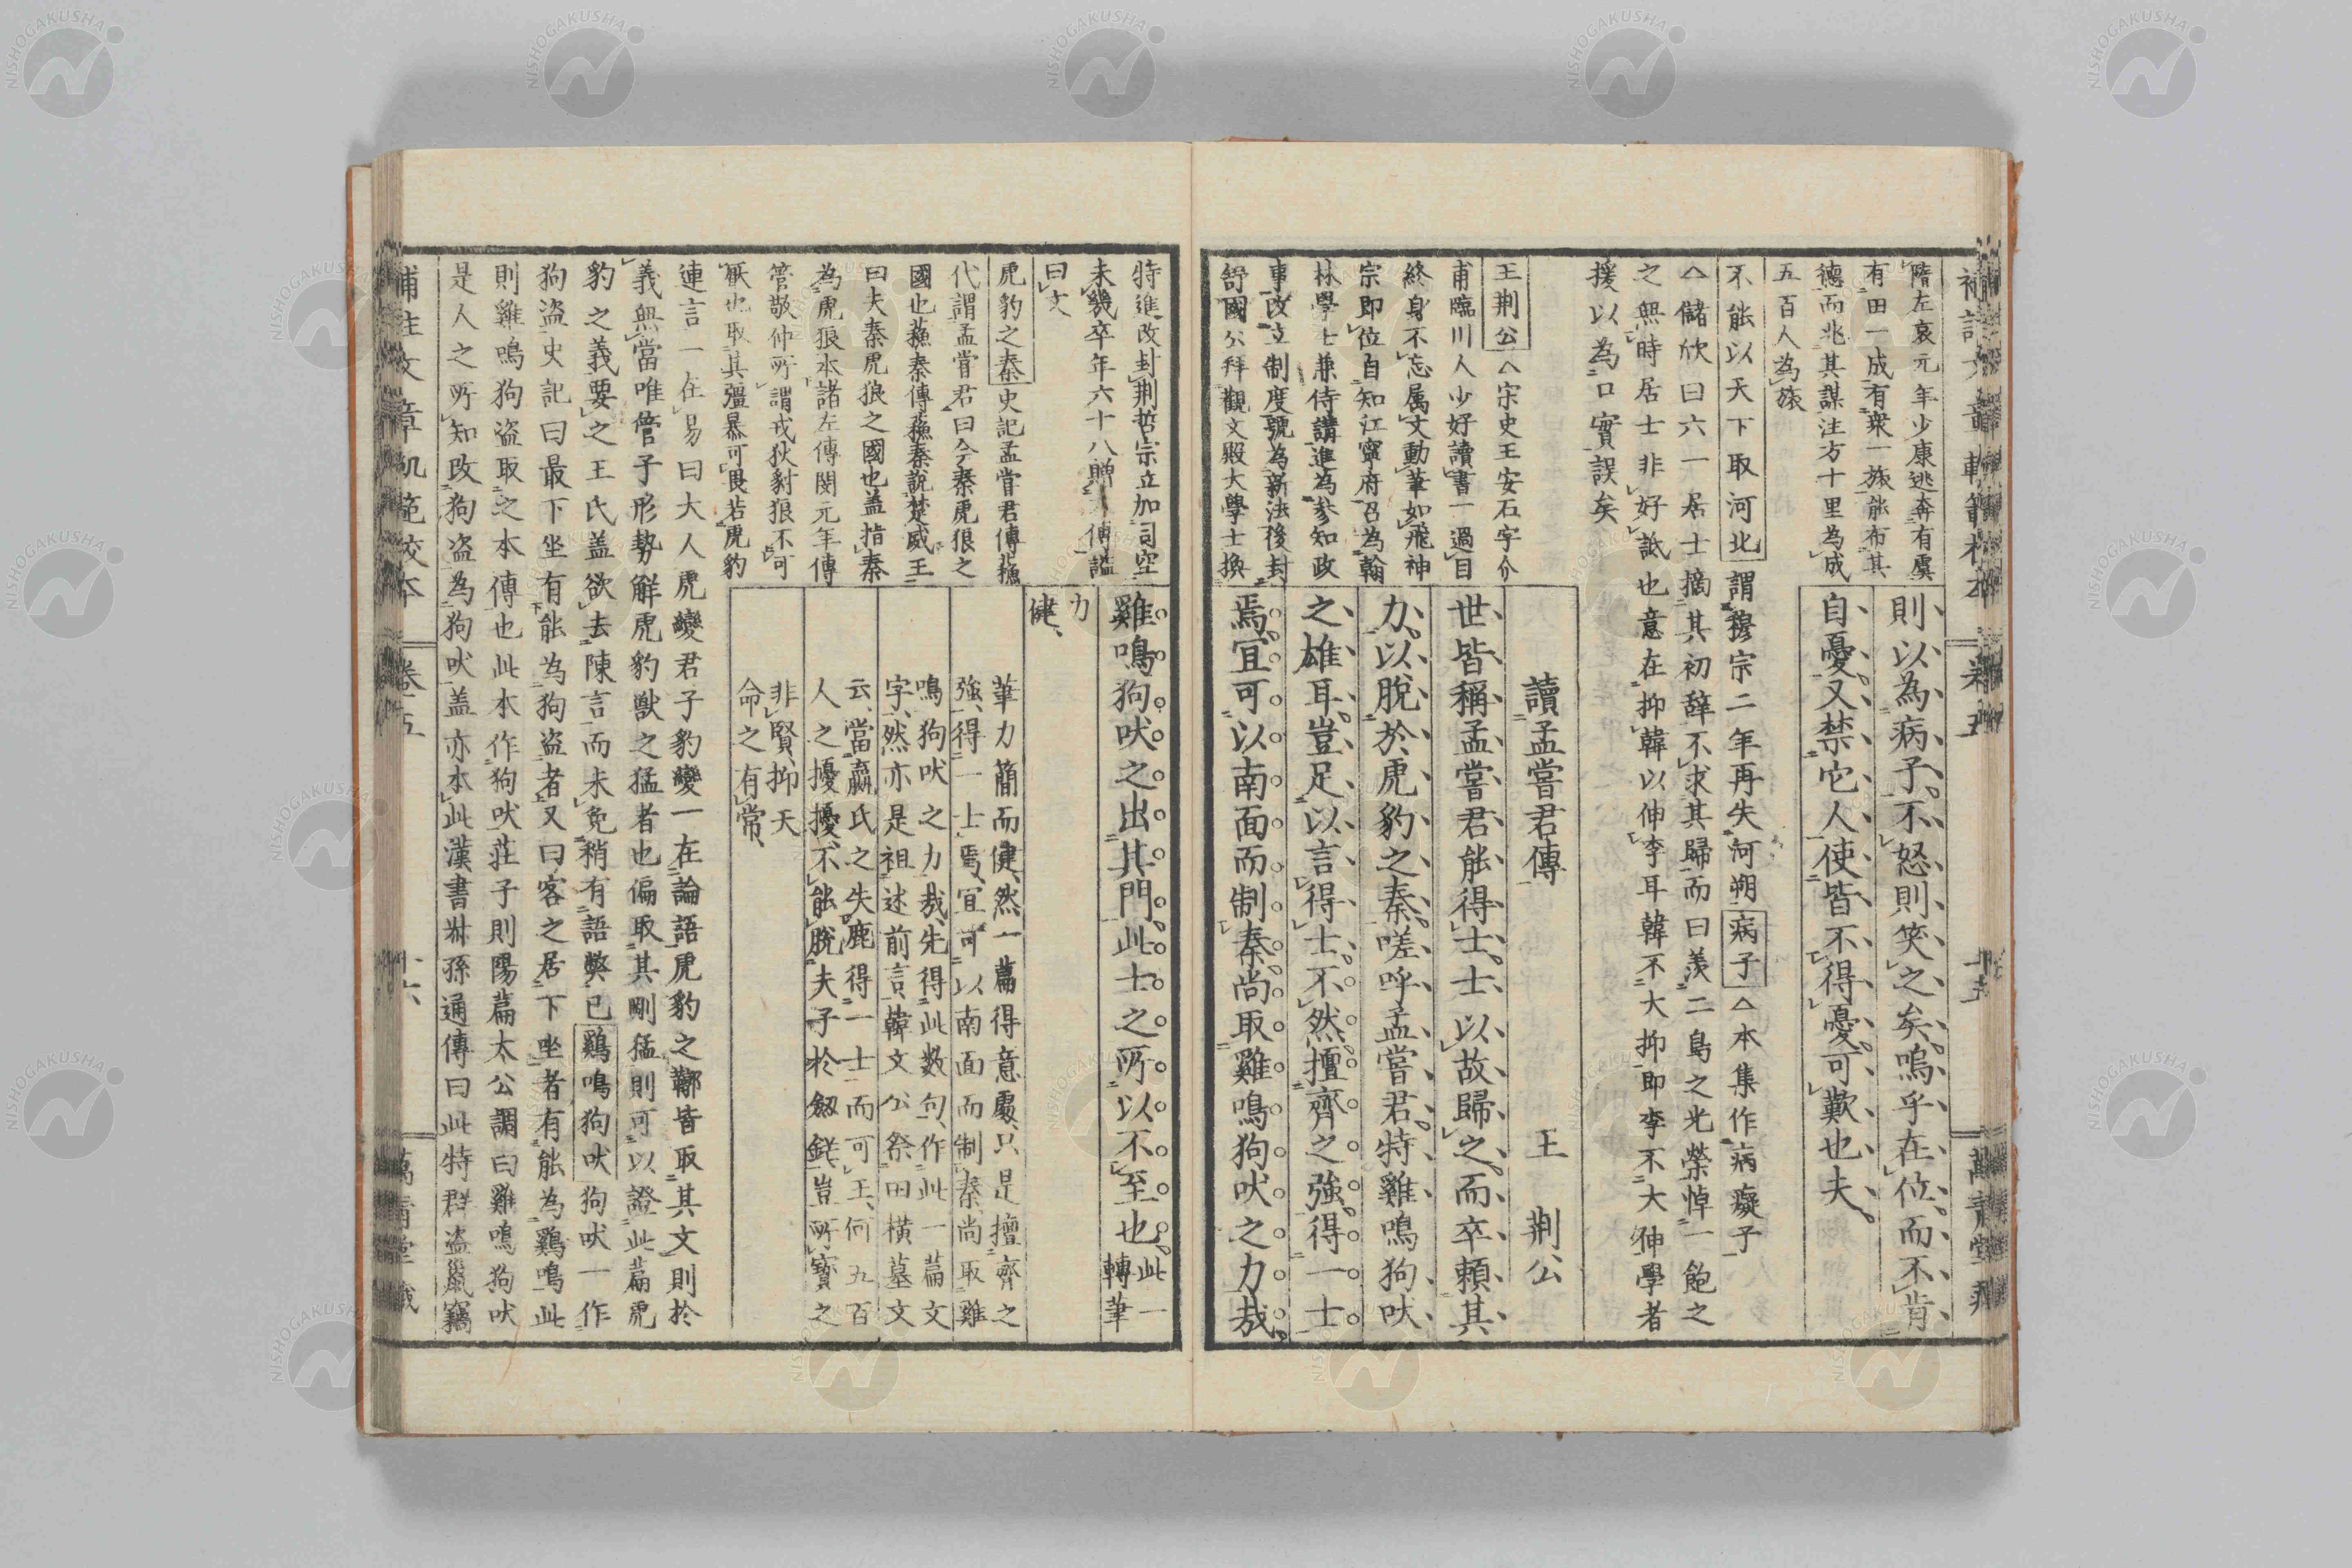 補註文章軌範校本 卷五 十五 萬青堂
則以為病子不怒則笑之矣嗚乎在位而不肯
自憂又禁它人使皆不得憂可歎也夫
隋左哀元年少康逃奔有虞
有田一成有衆一旅能布其
德而兆其謀注方十里為成
五百人為旅
不能以天下取河北 謂穆宗二年再失河朔 病子 △本集作病癡子
△儲欣曰六一居士摘其初辞不求其歸而曰羨二鳥之光榮悼一飽之
之無時居士非好詆也意在抑韓以伸李耳韓不大抑即李不大伸學者
援以為口實誤矣
讀孟嘗君傳 王荆公
世皆稱孟嘗君能得士士以故歸之而卒頼其
力以脫於虎豹之秦嗟呼孟嘗君特雞鳴狗吠
之雄耳豈足以言得士不然擅齊之強得一士
焉宜可以南面而制秦尚取雞鳴狗吠之力哉
王荆公 △宋史王安石字介
甫臨川人少好讀書一過目
終身不忘属文動筆如飛神
宗即位自知江寧府召為翰
林學士兼侍講進為參知政
事改立制度號為新法後封
舒國公拜觀文殿大學士換
特進改封荆哲宗立加司空
未幾卒年六十八贈太傅諡
曰文
雞鳴狗吠之出其門此士之所以不至也 此一
轉筆
力
健
筆力簡而健然一篇得意處只是擅齊之
強得一士焉宜可以南面而制秦尚取雞
鳴狗吠之力哉先得此数句作此一篇文
字然亦是祖述前言韓文公祭田横墓文
云當嬴氏之失鹿得一士而可王何五百
人之擾擾不能脫夫子於劔鋩豈所寶之
非賢抑天
命之有常
虎豹之秦 史記孟嘗君傳蘓
代謂孟嘗君曰今秦虎狼之
國也蘓秦傳蘓秦說楚威王
曰夫秦虎狼之國也盖指秦
為虎狼本諸左傳閔元年傳
管敬仲所謂戎狄豺狼不可
厭也取其彊暴可畏若虎豹
連言一在易曰大人虎變君子豹變一在論語虎豹之鞹皆取其文則於
義無當唯管子形勢解虎豹獣之猛者也偏取其剛猛則可以證此篇虎
豹之義要之王氏盖欲去陳言而未免稍有語弊已 鷄鳴狗吠 狗吠一作
狗盗史記曰最下坐有能為狗盗者又曰客之居下坐者有能為鷄鳴此
則雞鳴狗盗取之本傳也此本作狗吠莊子則陽篇太公調曰雞鳴狗吠
是人之所知改狗盗為狗吠盖亦本此漢書叔孫通傳曰此特群盗鼠竊
補註文章軌範校本 卷五 十六 萬青堂藏